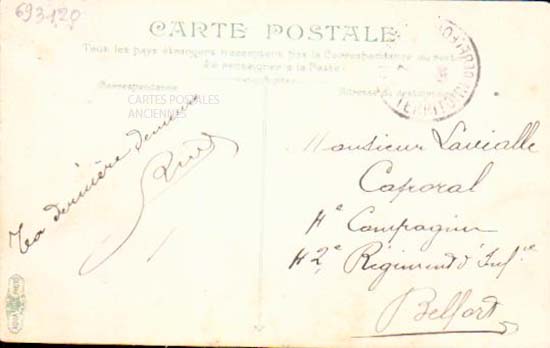 693120
CARTE POSTALE
Tous les pays étrangers n'acceptent pas la Correspondance au recto
Se renseigner à la Poste
Correspondance
CARTES POSTALES
ANCIENNES
TERRITOIRE
Ta dernière demeure
Monsieur Lavialle
Caporal
4e Compagnie
42e Régiment d'Infie
Belfort